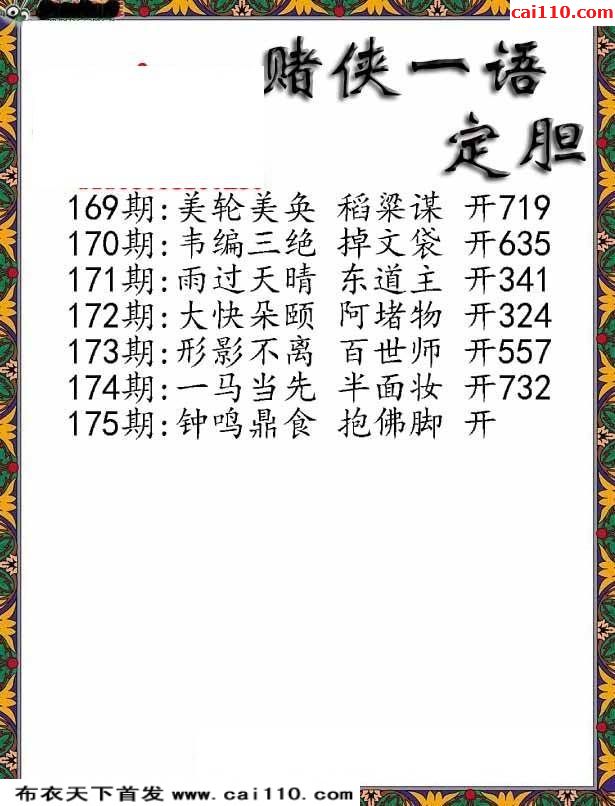 cai110.com
赌侠一语
定胆
169期:美轮美奂 稻粱谋 开719
170期:韦编三绝 掉文袋 开635
171期:雨过天晴 东道主 开341
172期:大快朵颐 阿堵物 开324
173期:形影不离 百世师 开557
174期:一马当先 半面妆 开732
175期:钟鸣鼎食 抱佛脚 开
布衣天下首发 www.cai110.com